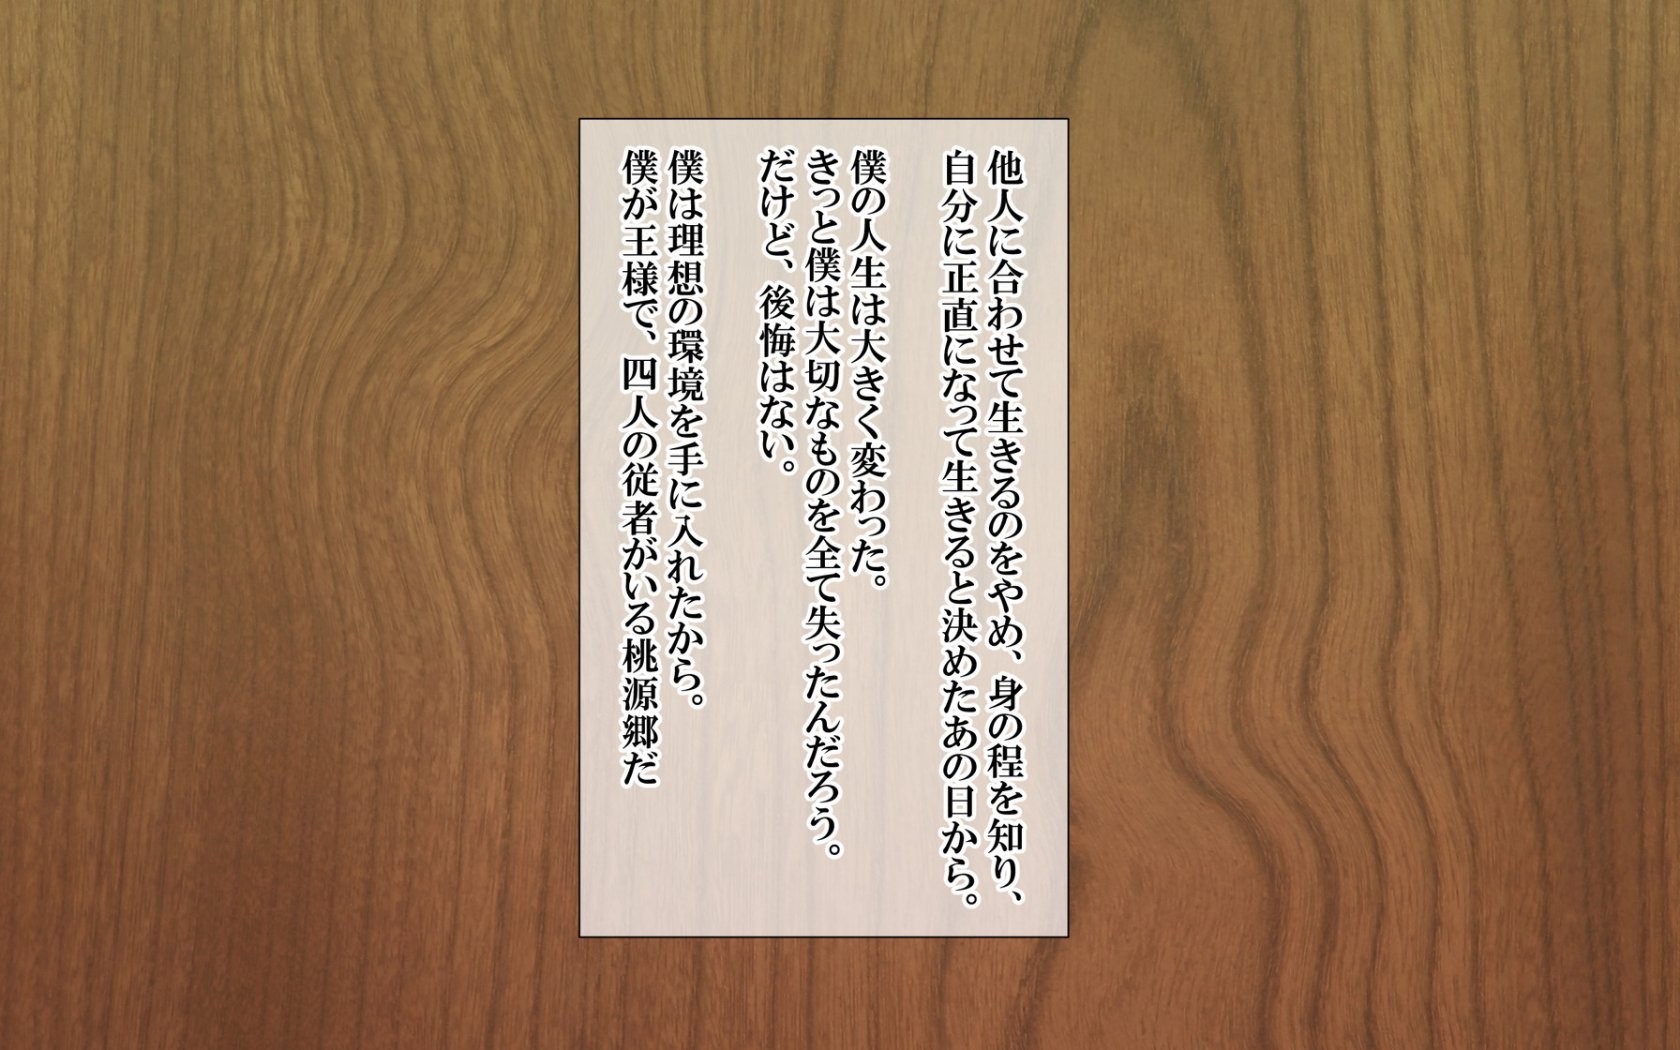 他人に合わせて生きるのをやめ、身の程を知り、
自分に正直になって生きると決めたあの日から。
僕の人生は大きく変わった。
きっと僕は大切なものを全て失ったんだろう。
だけど、後悔はない。
僕は理想の環境を手に入れたから。
僕が王様で、四人の従者がいる桃源郷だ